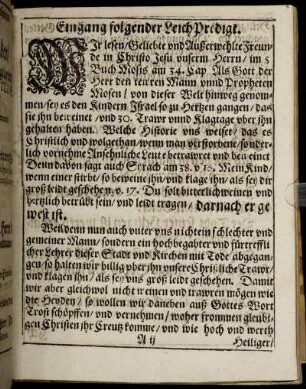 Eingang folgender LeichPredigt.
WIr lesen/ Geliebte vnd Außerwehlte Freun-
de in Christo Jesu vnserm Herrn/ im 5
Buch Mosis am 34. Cap. Als Gott der
Herr den tewren Mann vnnd Propheten
Mosen/ von dieser Welt hinweg genom-
men/ sey es den Kindern Israel so zu Hertzen gangen/ das
sie ihn beweinet/ vnd 30. Traur vnnd Klagtage vber ihn
gehalten haben. Welche Historie vns weiset/ das es
Christlich vnd wolgethan/ wenn man verstorbene/ sonder-
lich vornehme Ansehnliche Leute betrawret vnd beweinet
Denn davon sagt auch Syrach am 38. v. 16. Mein Kind/
wenn einer stirbt/ so beweine ihn/ vnd klage ihn/ als sey dir
groß leidt geschehen/ v. 17. Du solt bitterlich weinen vnd
hertzlich betrübt sein/ vnd leidt tragen/ darnach er ge
west ist.
Weil denn nun auch vnter vns nicht ein schlechter vnd
gemeiner Mann/ sondern ein hochbegabter vnd fürtreffli
cher Lehrer dieser Stadt vnd Kirchen mit Tode abgegan-
gen/ so halten wir billig vber ihn vnsere Christliche Trawr/
vnd klagen ihn/ als sey vns groß leidt geschehen. Damit
wir aber gleichwol nicht weinen vnd trawren mögen wie
die Heyden/ so wollen wir daneben auß Gottes Wort
Trost schöpffen/ vnd vernehmen/ woher frommen gleubi-
gen Christen ihr Creutz komme/ vnd wie hoch vnd werth
A ij
Heiliger/